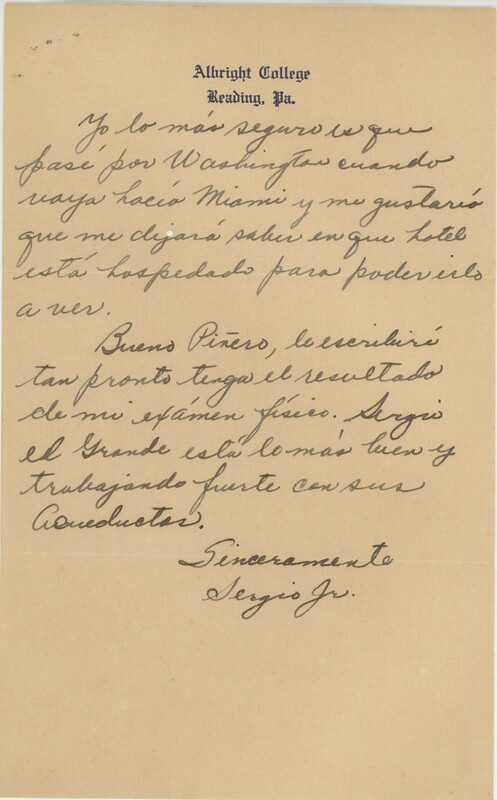 Albright College
Reading, Pa.
Yo lo más seguro es que
pasé por Washington cuando
vaya hacía Miami y me gustaría
que me dejará saber en que hotel
está hospedado para poder irlo
a ver.
Bueno Piñero, le escribiré
tan pronto tenga el resultado
de mi exámen físico. Sergio
el Grande está lo más bien y
trabajando fuerte con sus
Acueductos.
Sinceramente
Sergio Jr.